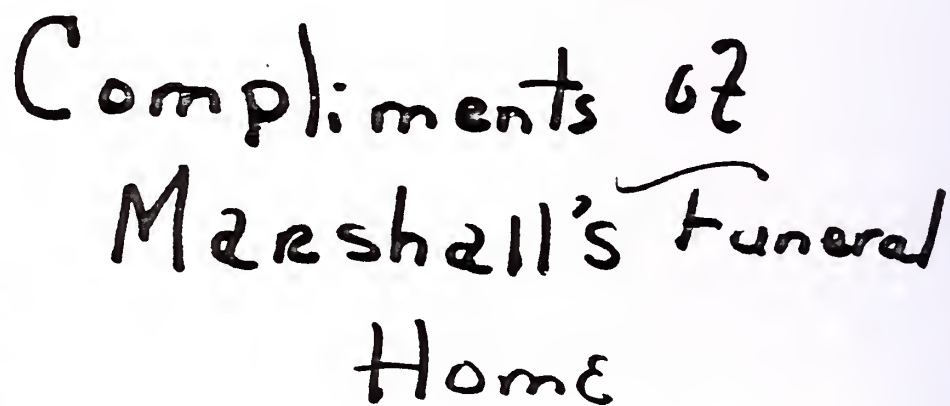 Compliments of
Marshall's Funeral
Home